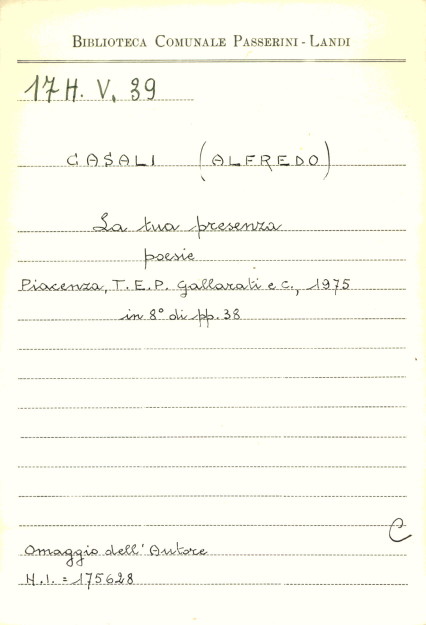 BIBLIOTECA COMUNALE PASSERINI - LANDI
17 H. V. 39
CASALI (ALFREDO)
La tua presenza
poesie
Piacenza, T. E. P. Gallarati e c., 1975
in 8° di pp. 38
C
Omaggio dell'Autore
N. I. = 175628